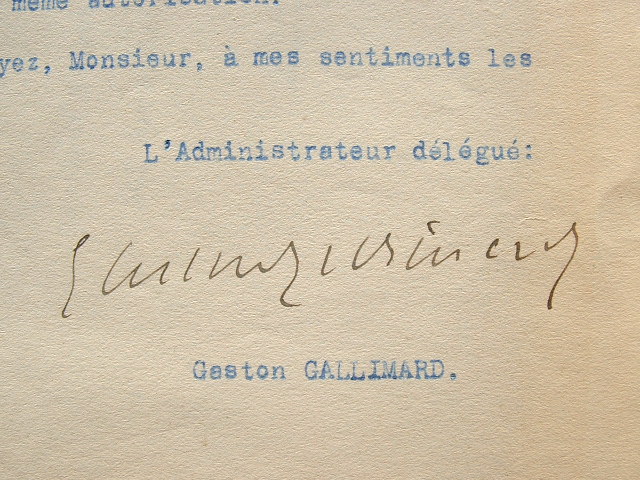 même autorisation.
yez, Monsieur, à mes sentiments les
L'Administrateur délégué:
Gaston Gallimard
Gaston GALLIMARD.